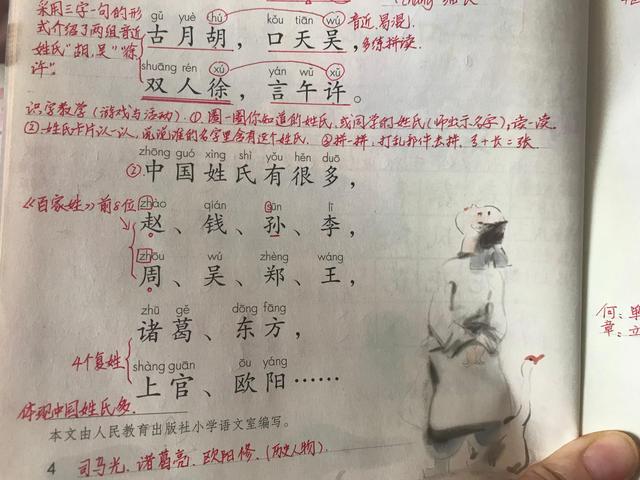 采用三字一句的形
式介绍了两组音近
姓氏"胡,吴""徐
许".
gǔ yuè hú kǒu tiān wú
古月胡，口天吴，
音近,易混.
多练拼读.
shuāng rén xú yán wǔ xǔ
双人徐，言午许。
识字教学(游戏与活动).①圈一圈你知道的姓氏,或同学的姓氏(师出示名字),读一读.
②姓氏卡片认一认,说说谁的名字里含有这个姓氏. ③拼一拼,打乱部件去拼,弓+长=张
zhōng guó xìng shì yǒu hěn duō
②中国姓氏有很多，
《百家姓》前8位
zhào qián sūn lǐ
赵、钱、孙、李，
zhōu wú zhèng wáng
周、吴、郑、王，
zhū gě dōng fāng
诸葛、东方，
4个复姓
shàng guān ōu yáng
上官、欧阳……
体现中国姓氏多.
本文由人民教育出版社小学语文室编写。
4 司马光、诸葛亮、欧阳修.(历史人物)
何:单
章:立